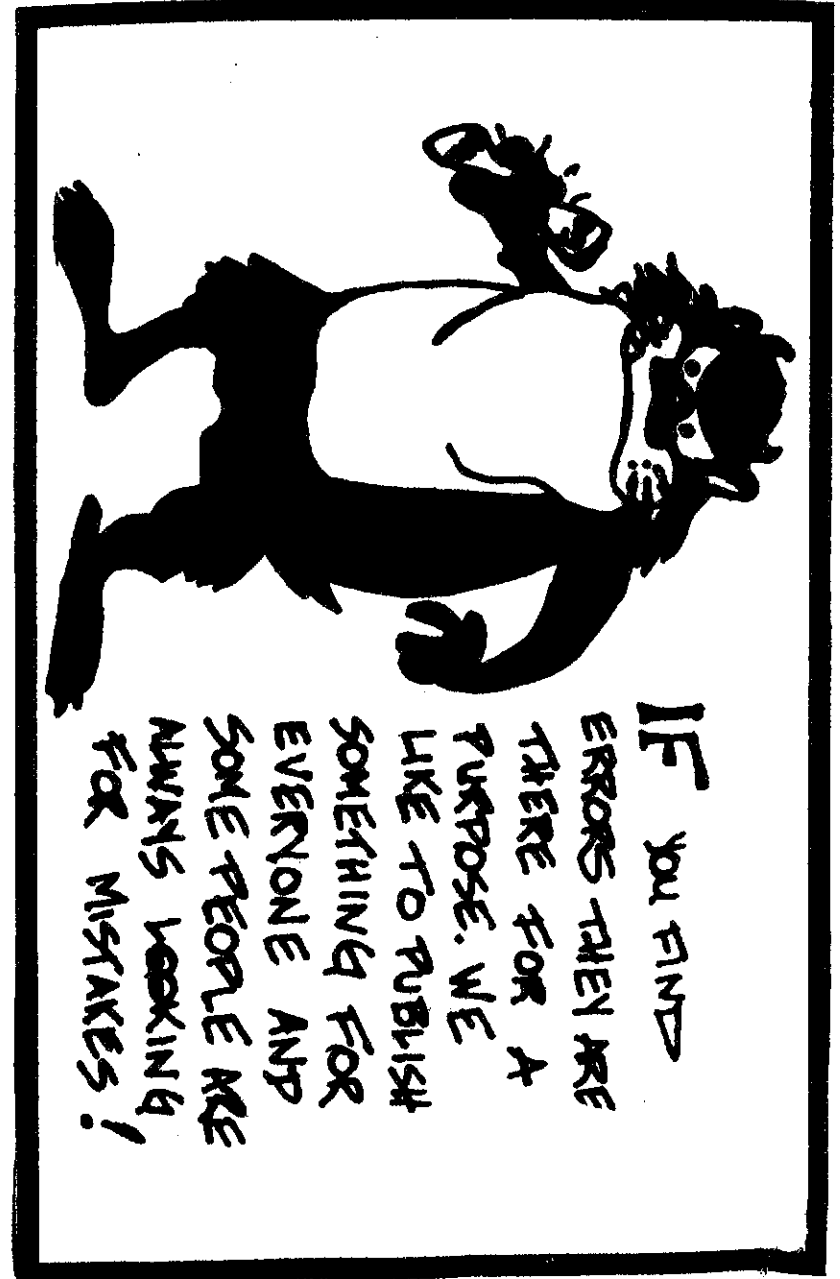 IF YOU FIND
ERRORS THEY ARE
THERE FOR A
PURPOSE. WE
LIKE TO PUBLISH
SOMETHING FOR
EVERYONE AND
SOME PEOPLE ARE
ALWAYS LOOKING
FOR MISTAKES!